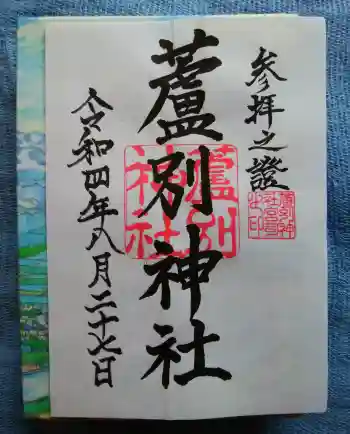 参拝之證
蘆別神社
令和四年八月二十七日
蘆別神社
蘆別神社宮司之印